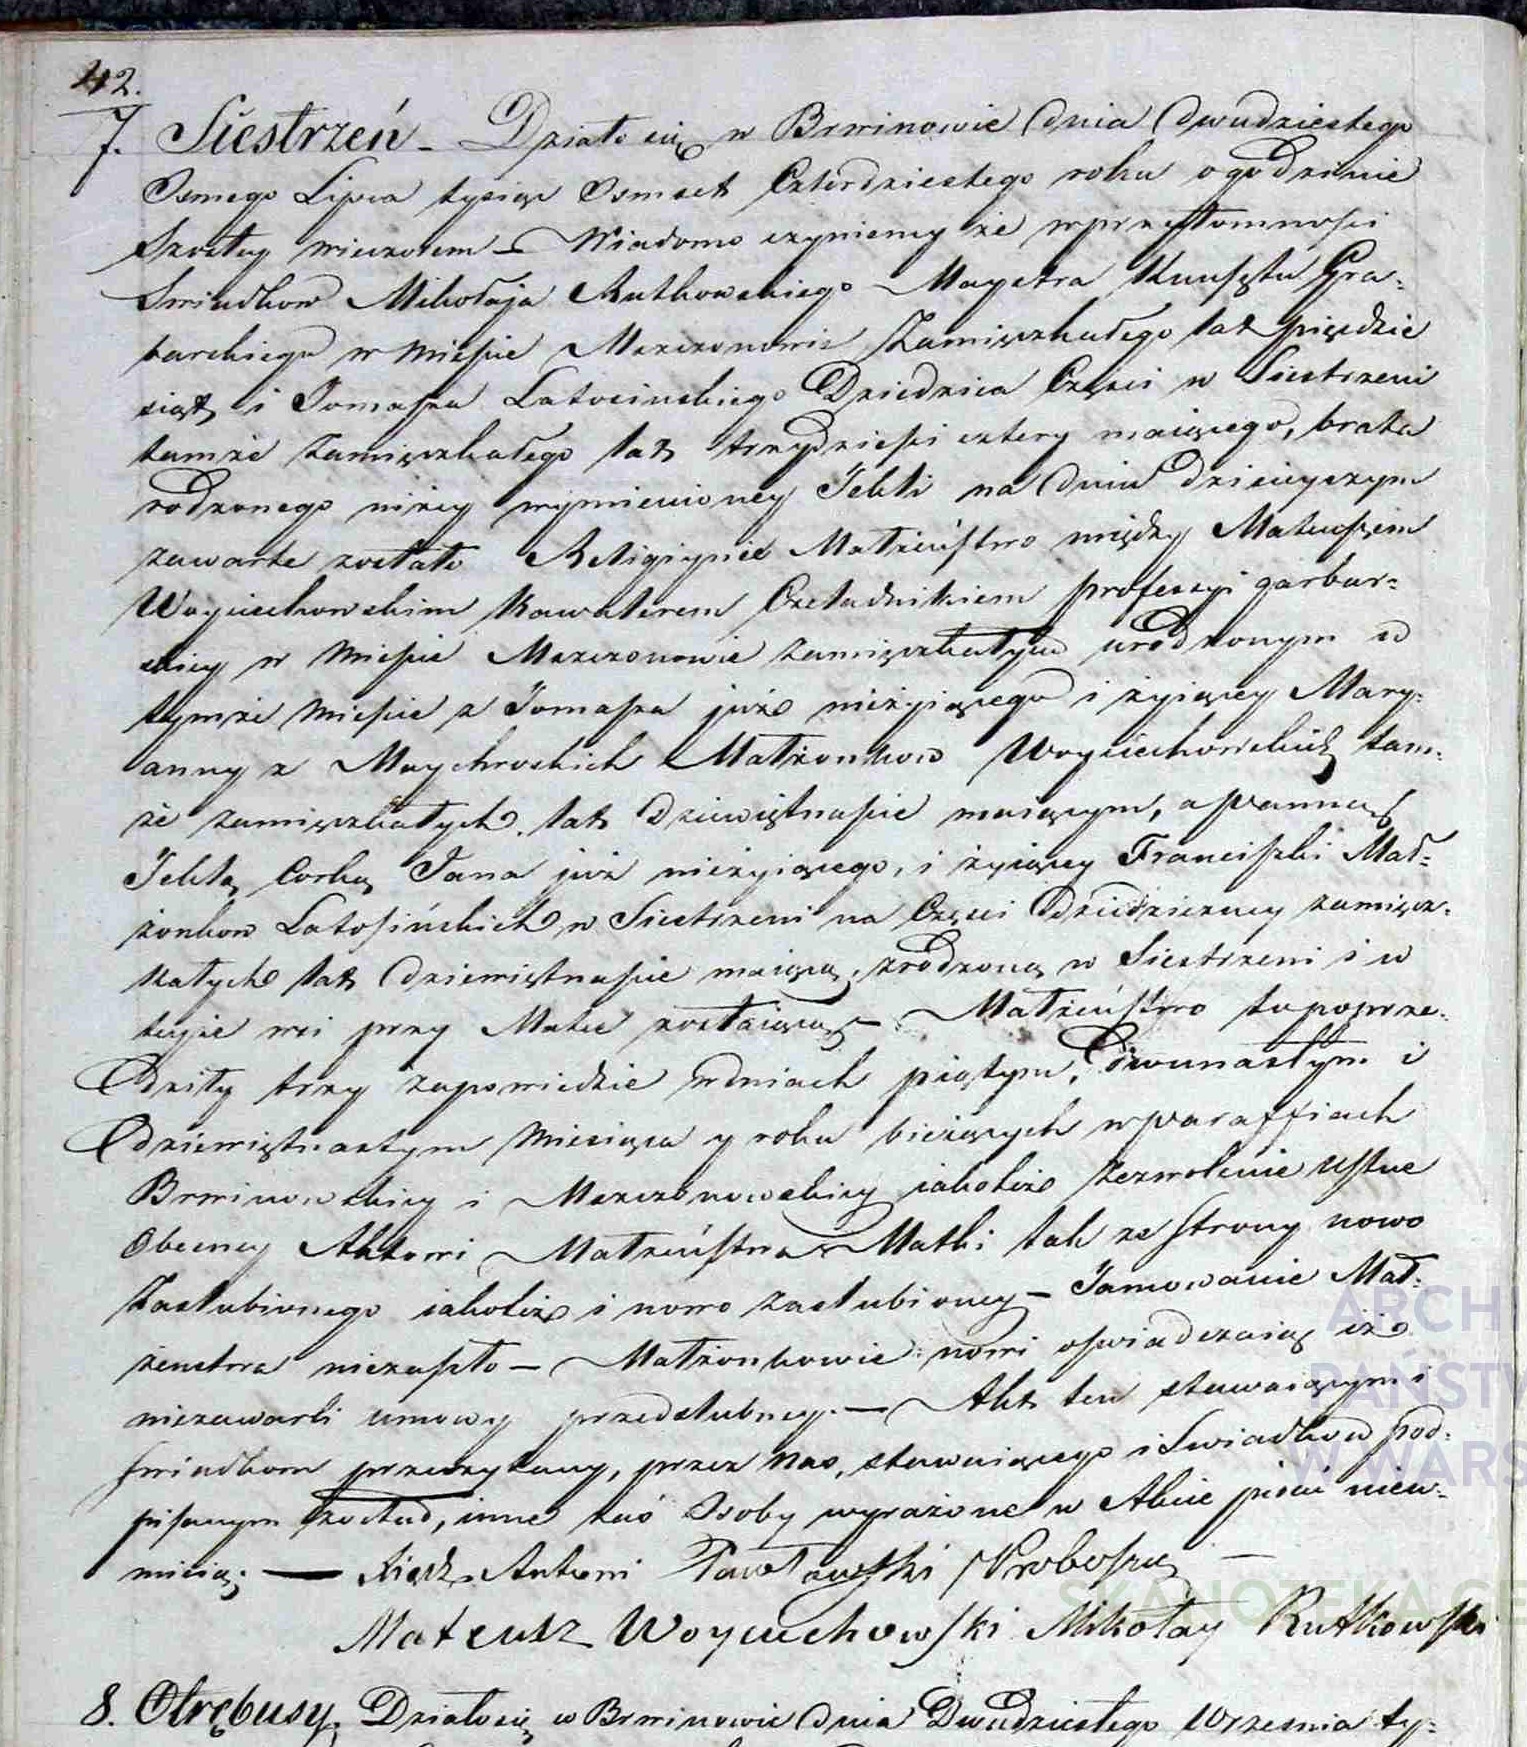 42.
7. Siestrzeń – Działo się w Brwinowie dnia dwudziestego
Osmego Lipca tysiąc Osmset Czterdziestego roku o godzinie
Szóstey wieczorem – Wiadomo czyniemy że w przytomności
Swiadków Mikołaja Rutkowskiego Maystra Kunsztu Gra-
barskiego w Mieście Mszczonowie Zamięszkałego lat pięćdzie
siąt i Tomasza Latosinskiego Dziedzica Części w Siestrzeni
tamże zamięszkałego lat trzydzieści cztery maiącego, brata
rodzonego niżey wymienioney Tekli na dniu dzisieyszym
zawarte zostało Religiynie Małżeństwo między Mateuszem
Woyciechowskim Kawalerem Czeladnikiem professyi garbar-
skiey w Mieście Mszczonowie zamięszkałym urodzonym w
tymże Mieście z Tomasza już nieżyiącego i żyiącey Mary-
anny z Maychroskich Małżonków Woyciechowskich tam-
że zamięszkałych, lat dziewiętnaście maiącym, a Panną
Teklą Corką Jana już nieżyiącego, i żyiącey Franciszki Mał-
żonków Latosińskich w Siestrzeni na Części dziedziczney zamięsz-
kałych lat dziewiętnaście maiącą, zrodzoną w Siestrzeni i w
teyże wsi przy Matce zostaiącą – Małżeństwo to poprze-
dziły trzy zapowiedzie w dniach piątym, dwunastym i
dziewiętnastym Miesiąca y roku bieżących w Paraffiach
Brwinowskiey i Mszczonowskiey iakoteż Zezwolenie ustne
Obecney Aktowi Małżeństwa Matki tak ze strony nowo
Zaslubionego iakoteż i nowo zaslubioney – Tamowanie Mał-
żenstwa niezaszło – Małżonkowie nowi oświadczaią iż
niezawarli umowy przedslubney. – Akt ten stawaiącym i
Swiadkom przeczytany, przez Nas, stawaiącego i Swiadków pod-
pisanym został, inne zaś Osoby wyrażone w Akcie pisać nieu-
mieią. – Xiądz Antoni Pawłowski Proboszcz –
Mateusz Woyciechowski Mikołay Rutkowski
8. Otrębusy, Działo się w Brwinowie dnia Dwudziestego Września ty-
ARCHI
PAŃSTW
W WARS
SKANOTEKA.GE